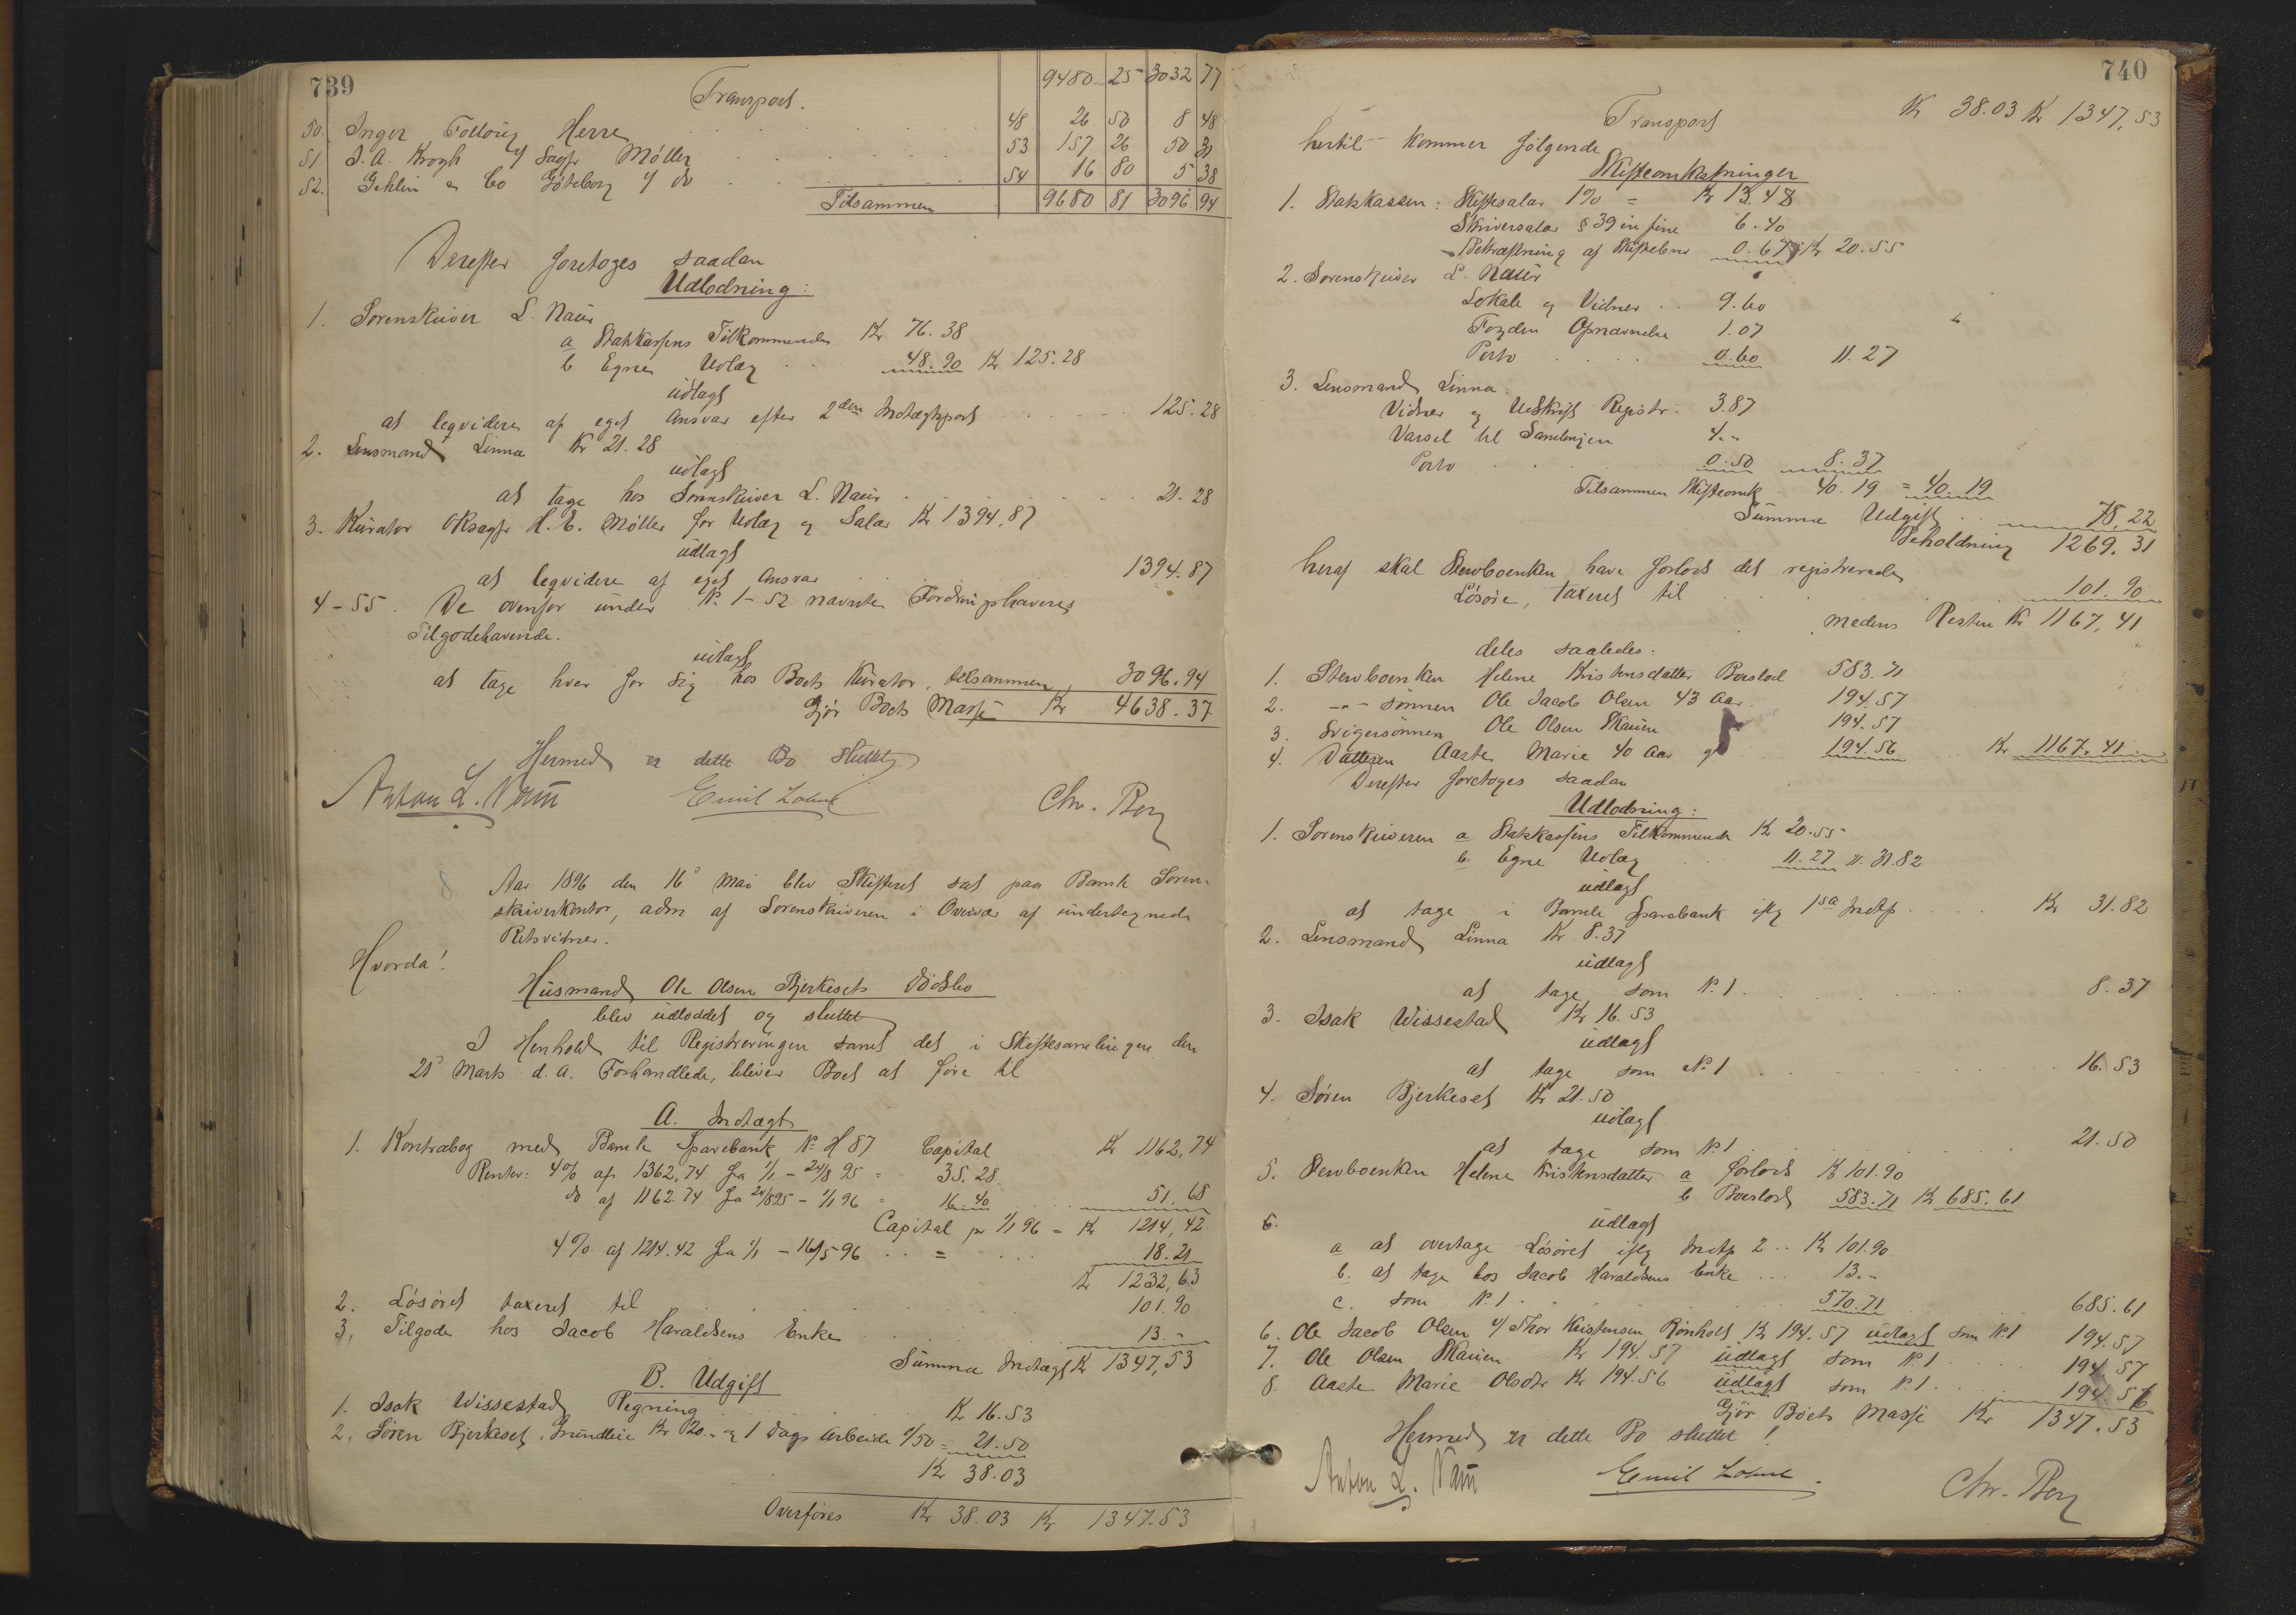 739
Transport. 9480 25 3032 77
50. Inger Herre 48 26 50 8 48
51. J. A. Krogh v/ Sagfr Møller 53 157 26 50 31
52. Gehlin & Co Göteborg v/ do 54 16 80 5 38
Tilsammen 9680 81 3096 94
Derefter foretoges saadan
Udlodning:
1. Sorenskriver L. Naur
a Statskassens Tilkommende Kr 76.38
b Egne Udlæg 48.90 Kr 125.28
udlagt
at leqvidere af eget Ansvar efter 2den Indtægtspost 125.28
2. Lensmand Linna Kr 21.28
udlagt
at tage hos Sorenskriver L. Naur 21.28
3. Kurator Oksagfr H. E. Møller for Udlæg og Salær Kr 1394,87
udlagt
at leqvidere af eget Ansvar 1394.87
4-55. De ovenfor under No 1-52 nævnte Fordringshaveres
Tilgodehavende.
udlagt
at tage hver for sig hos Boets Kurator, tilsammen 3096.94
Gjør Boets Masse Kr 4638.37
Hermed er dette Bo sluttet
Anton L. Naur Emil Chr. Berg
8 Aar 1896 den 16d Mai blev Skifteret sat paa Bamle Soren-
skriverkontor, adm af Sorenskriveren i Overvær af undertegnede
Retsvidner.
Hvorda!
Husmand Ole Olsen Bjerkesets Dødsbo
blev udloddet og sluttet
I Henhold til Registreringen samt det i Skiftesamlingen den
21d Marts d. A. Forhandlede, bliver Boet at føre til
A. Indtægt
1. Kontrabog med Bamle Sparebank No H 87 Capital Kr 1162,74
Renter: 4% af 1362,74 fra 1/1 - 24/8 95 = 35.28
do af 1162.74 fra 24/8 95 - 1/1 96 = 16.40 51.68
Capital pr 1/1 96 = Kr 1214,42
4% af 1214.42 fra 1/1 - 16/5 96 = 18.21
Kr 1232,63
2. Løsøret taxeret til 101.90
3. Tilgode hos Jacob Haraldsens Enke 13.-
Summa Indtægt Kr 1347,53
B. Udgift
1. Isak Wissestad Regning Kr 16.53
2. Søren Bjerkeset, Grundleie Kr 20.- og 1 Dags Arbeide 1/50 = 21.50
Kr 38.03
Overføres Kr 38.03 Kr 1347.53
740
Transport Kr 38.03 Kr 1347,53
hertil kommer følgende
Skifteomkostninger
1. Statskassen: Skiftesalær 1% = Kr 13.48
Skriversalær § 39 in fine 6.40
Bekræftning af Skiftebrev 0.67 Kr 20.55
2. Sorenskriver L. Naur
Lokale og Vidner 9.60
Fogden Opnævnelse 1.07
Porto 0.60 11.27
3. Lensmand Linna:
Vidner og Udskrift Registr. 3.87
Varsel til Samlingen 4.-
Porto 0.50 8.37
Tilsammen Skifteomk. 40.19 = 40.19
Summa Udgift 78,22
Beholdning 1269.31
heraf skal Stervboenken have forlods det registrerede
Løsøre, taxeret til 101.90
medens Resten Kr 1167,41
deles saaledes:
1. Stervboenken Helene Kristensdatter Boeslod 583.71
2. -"- sønnen Ole Jacob Olsen 43 Aar 194.57
3. Svigersønnen Ole Olsen Skauen 194.57
4. Datteren Aaste Marie 40 Aar g 194.56 Kr 1167,41
Derefter foretoges saadan
Udlodning:
1. Sorenskriveren a Statskassens Tilkommende Kr 20.55
b. Egne Udlæg 11.27 Kr. 31.82
udlagt
at tage i Bamle Sparebank iflg 1ste Indtp. Kr 31.82
2. Lensmand Linna Kr 8.37
udlagt
at tage som No 1. 8.37
3. Isak Wissestad Kr 16.53
udlagt
at tage som No 1 16.53
4. Søren Bjerkeset Kr 21.50
udlagt
at tage som No 1 21.50
5. Stervboenken Helene Kristensdatter a forlods Kr 101.90
b Boeslod 583.71 Kr 685.61
6. udlagt
a at overtage Løsøret iflg Indtp 2 Kr 101.90
b. at tage hos Jacob Haraldsens Enke 13.-
c. som No 1 570.71 685.61
6. Ole Jacob Olsen v/ Thor Kristensen Rønholt Kr 194.57 udlagt som No 1 194.57
7. Ole Olsen Skauen Kr 194.57 udlagt som No 1 194.57
8. Aaste Marie Olsdtr Kr 194.56 udlagt som No 1. 194.56
Gjør Boets Masse Kr 1347.53
Hermed er dette Bo sluttet!
Anton L. Naur Emil Chr. Berg